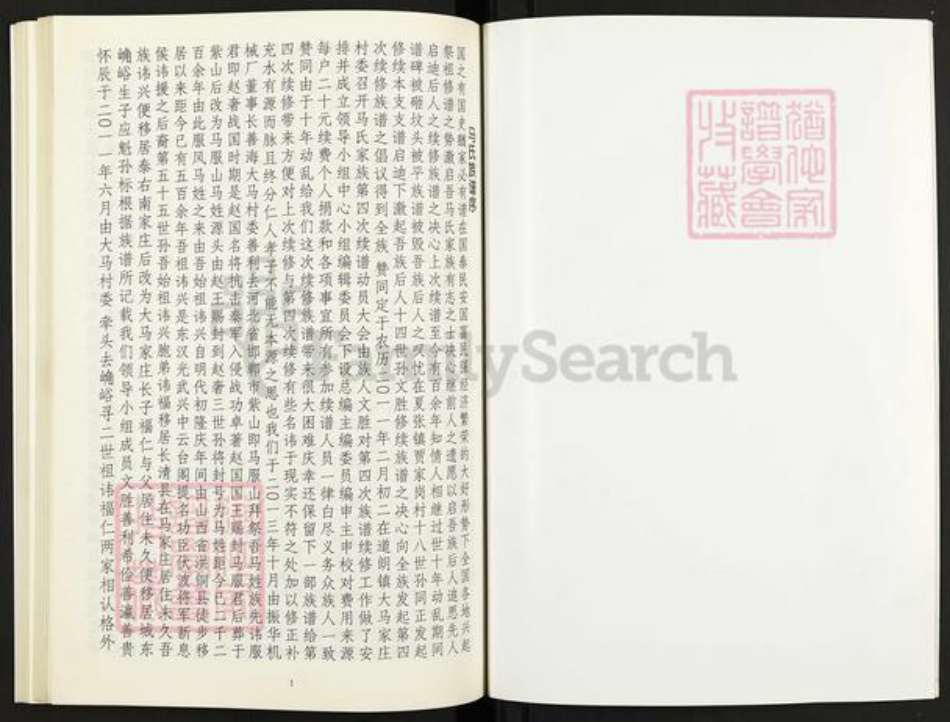 国之有国史犹家必有谱在国泰民安国富民强经济繁荣的大好形势下全国各地兴起
祭祖修谱之势激启吾马氏家族有志之士决心继前人之遗愿以启吾族后人追思先人
启迪后人之续修族谱之决心上次续谱至今有百余年知情人相继过世十年动乱期间
谱碑被砸坟头被平族谱被毁吾族后人之叹忧在夏张镇贾家岗村十八世孙同正发起
修续本支支谱启迪下激起吾族后人十四世孙文胜修续族谱之决心向全族发起第四
次续修族谱之倡议得到全族 赞同定于农历二〇一一年二月初二在道朗镇大马家庄
村委召开马氏家族第四次续谱动员大会由族人文胜对第四次族谱续修工作做了安
排并成立领导小组中心小组编辑委员会下设总编主编委员编申主申校对费用来源
每户二十元续费个人捐款和各项事宜所有参加续谱人员一律白尽义务众族人一致
赞同由于十年动乱给我们这次续修族谱带来很大困难庆幸还保留下一部族谱给第
四次续修带来方便对上次续修与第四次续修有些名讳于现实不符之处加以修正补
充水有源而脉且终分仁人孝子不能无本源之思也我们于二〇一三年十月由振华机
械厂董事长善海大马村委善利去河北省邯郸市紫山即马服山拜祭吾马姓族先讳服
君即赵奢战国时期是赵国名将抗击秦军入侵战功卓著赵国国王赐封马服君后葬于
紫山后改为马服山马姓源头由赵王赐封到赵奢三世孙将封号为马姓距今已二千二
百余年由此服风马姓之来由吾始祖讳兴自明代初隆庆年间由山西省洪铜县徒步移
居以来距今已有五百余年吾祖讳兴是东汉光武兴中云台阁提名功臣伏波将军新息
侯讳援之后裔第五十五世孙吾始祖讳兴胞弟讳福移居长清县在马家庄居住未久吾
族讳兴便移居泰右南家庄后改为大马家庄长子福仁与父居住未久便移居城东
峪生子应魁孙标根据族谱所记载我们领导小组成员文胜善利希俭善瀛善贵
怀辰于二〇一一年六月由大马村委 牵头去 峪寻二世祖讳福仁两家相认格外
1
FamilySearch
谱学会
收藏